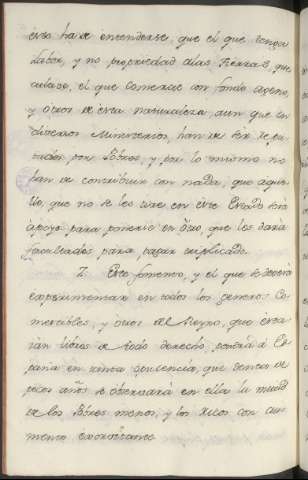 esto ha de entenderse, que el que tenga
labor, y no propriedad de las tierras que
cultiva, el que comercie con fondo ageno,
y otros de esta naturaleza, aun que en
diversos Ministerios, han de ser reputados
por Pobres, y por lo mismo no
han de contribuir con nada, que aque-
llo, que no se les saca en este Estado será
apoyo para ponerse en otro, que les dará
facultades para pagar triplicado.
7. Este fomento, y el que se deverá
experimentar en todos los generos Co-
mercibles, y otros del Reyno, que esta-
rán libres de todo derecho, pondrá a Es-
paña en tanta opulencia, que dentro de
pocos años se observará en ella la mitad
de los Pobres menos, y los ricos con au-
mento exorbitante